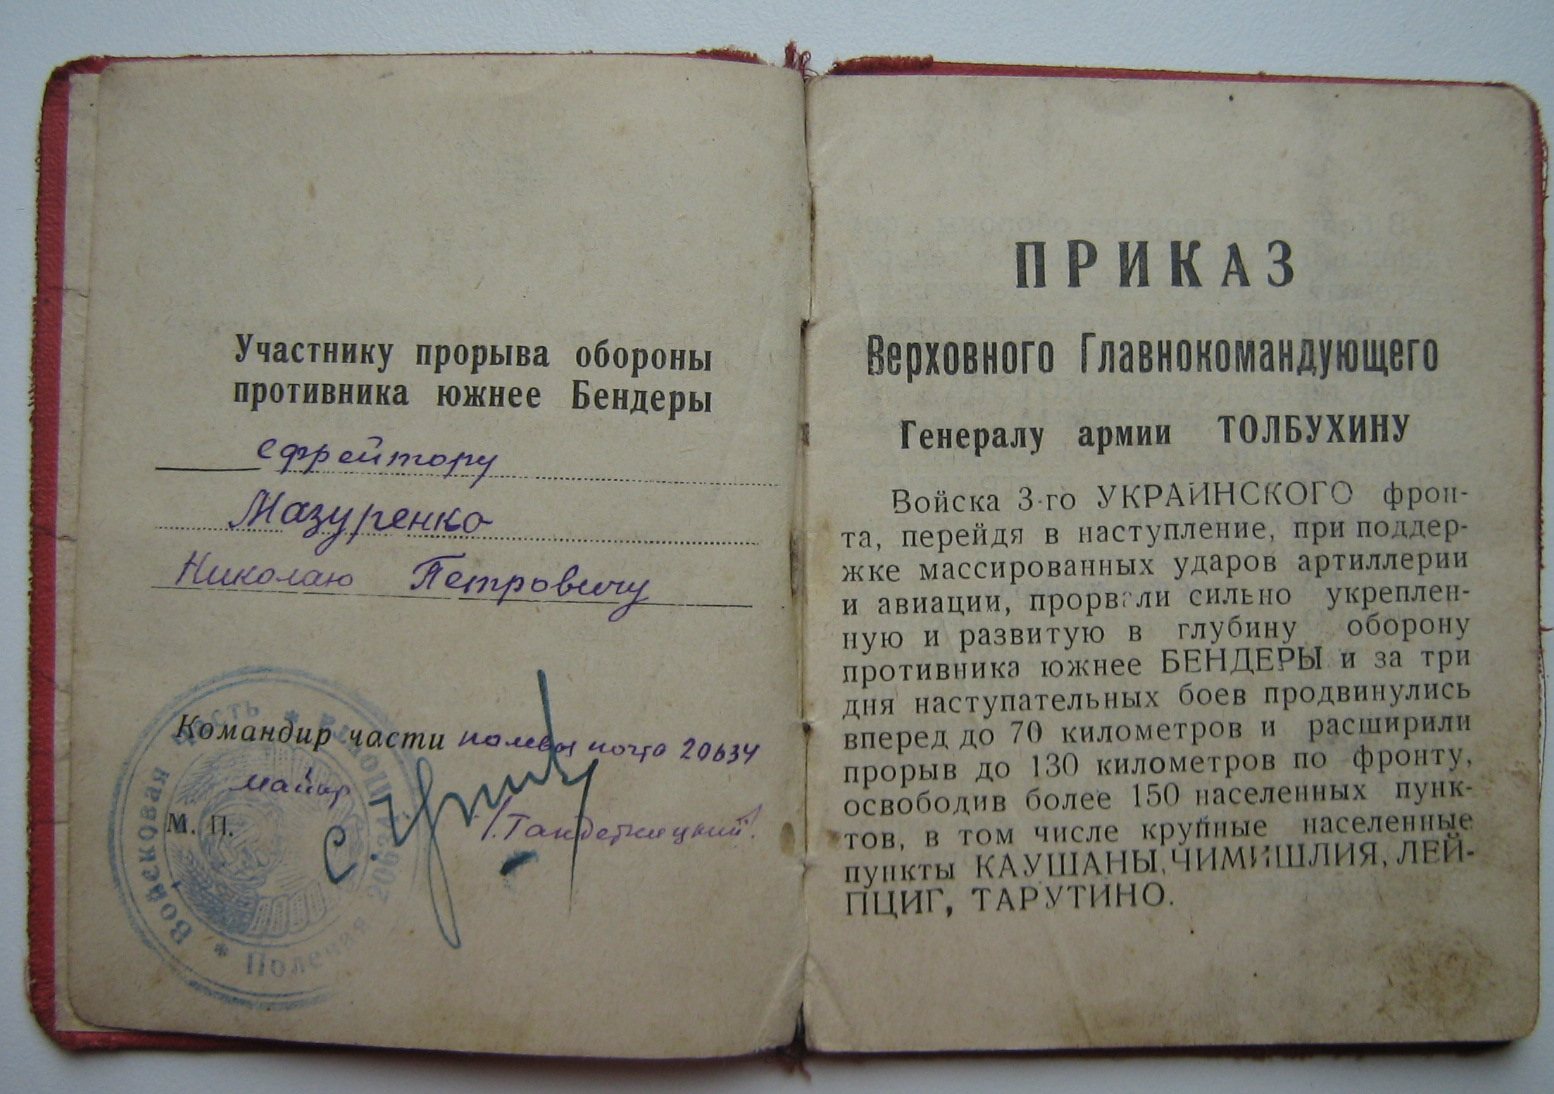 Участнику прорыва обороны
противника южнее Бендеры
ефрейтору
Мазуренко
Николаю Петровичу
Командир части полевая почта 20634
майор
М. П.
Войсковая часть * Полевая почта * Полевая 20634
ПРИКАЗ
Верховного Главнокомандующего
Генералу армии ТОЛБУХИНУ
Войска 3-го УКРАИНСКОГО фрон-
та, перейдя в наступление, при поддер-
жке массированных ударов артиллерии
и авиации, прорвали сильно укреплен-
ную и развитую в глубину оборону
противника южнее БЕНДЕРЫ и за три
дня наступательных боев продвинулись
вперед до 70 километров и расширили
прорыв до 130 километров по фронту,
освободив более 150 населенных пунк-
тов, в том числе крупные населенные
пункты КАУШАНЫ, ЧИМИШЛИЯ, ЛЕЙ-
ПЦИГ, ТАРУТИНО.